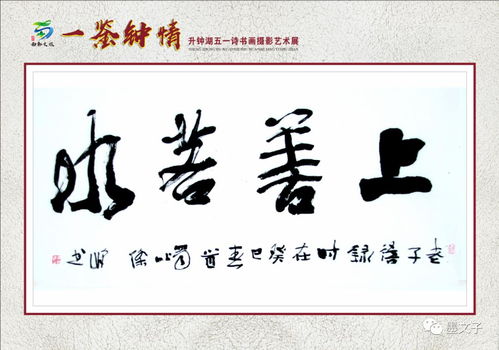 一鉴钟情
升钟湖五一诗书画摄影艺术展
上善若水
老子语録时在癸巳春
墨文子